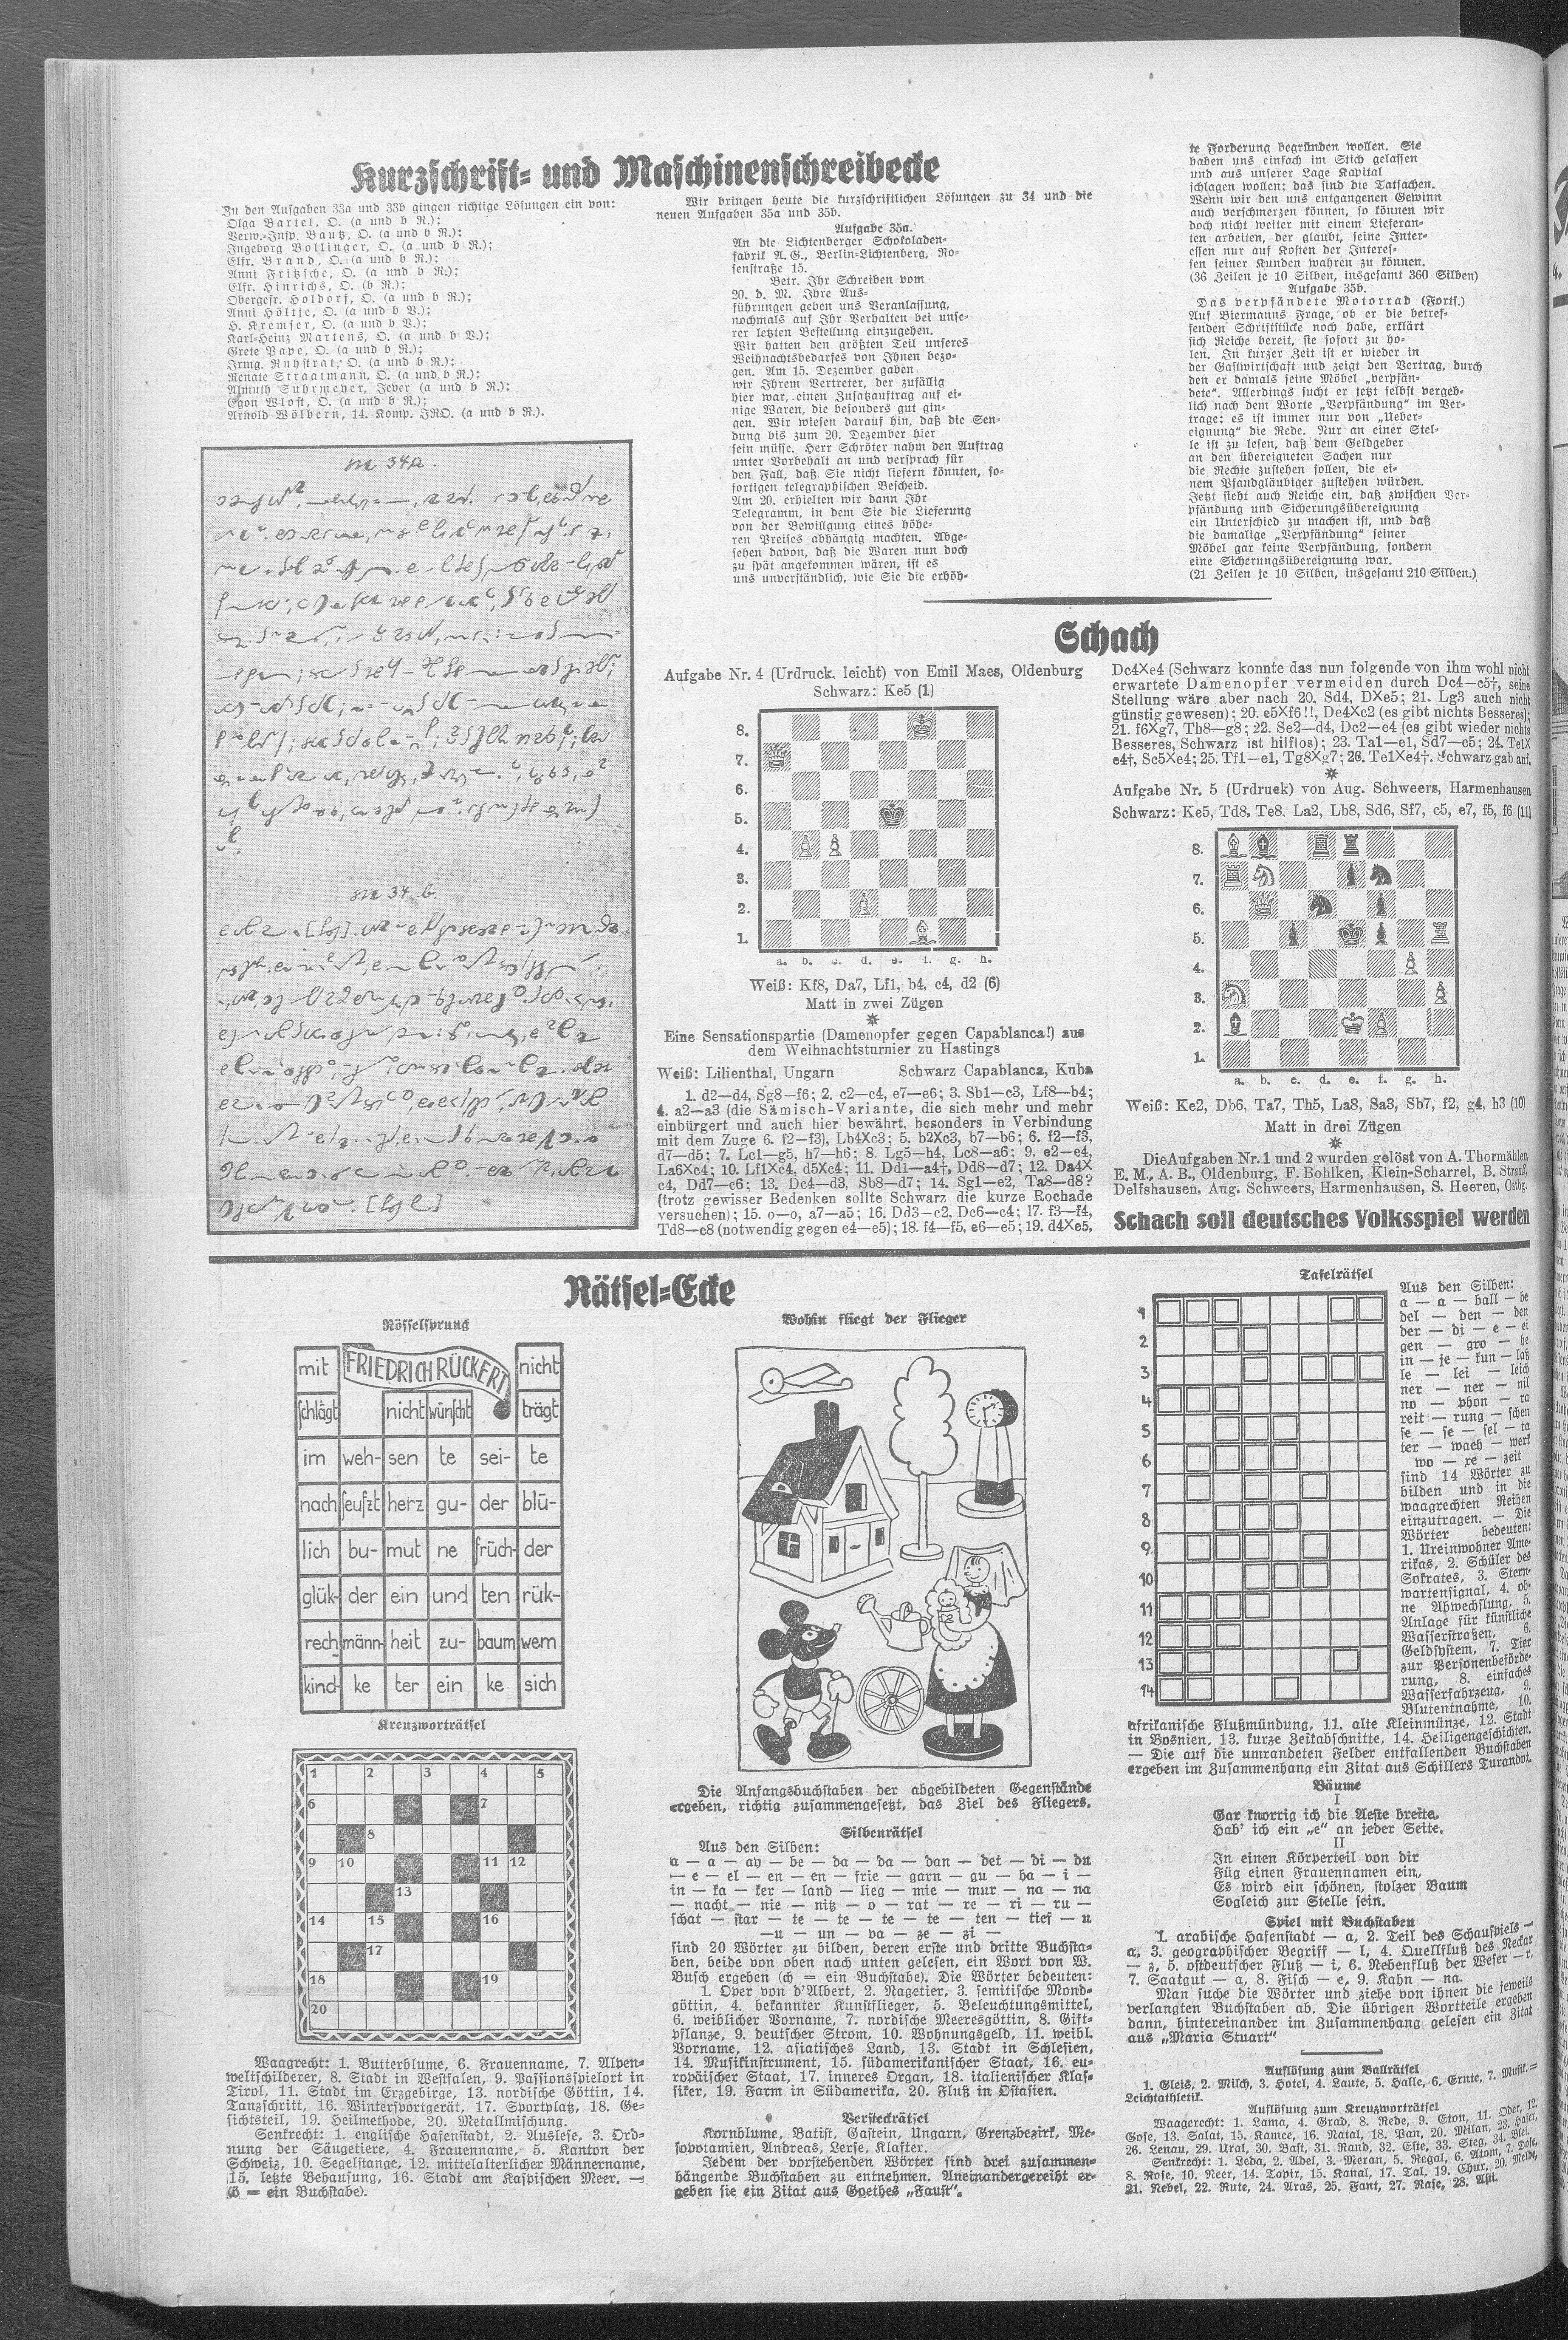 Kurzschrift- und Maschinenschreibecke
Zu den Aufgaben 33a und 33b gingen richtige Lösungen ein von:
Olga Bartel, O. (a und b R.);
Verw.-Insp. Bautz, O. (a und b R.);
Ingeborg Bollinger, O. (a und b R.);
Elfr. Brand, O. (a und b R.);
Anni Fritzsche, O. (a und b R.);
Elfr. Hinrichs, O. (b R.);
Obergefr. Holdorf, O. (a und b R.);
Anni Höltje, O. (a und b V.);
H. Kremser, O. (a und b V.);
Karl-Heinz Martens, O. (a und b V.);
Grete Pape, O. (a und b R.);
Irmg. Ruhstrat, O. (a und b R.);
Renate Straatmann, O. (a und b R.);
Almuth Suhrmeyer, Jever (a und b R.);
Egon Wlost, O. (a und b R.);
Arnold Wölbern, 14. Komp. IRO. (a und b R.).
34a.
34 b.
Wir bringen heute die kurzschriftlichen Lösungen zu 34 und die
neuen Aufgaben 35a und 35b.
Aufgabe 35a.
An die Lichtenberger Schokoladen-
fabrik A. G., Berlin-Lichtenberg, Ro-
senstraße 15.
Betr. Ihr Schreiben vom
20. d. M. Ihre Aus-
führungen geben uns Veranlassung,
nochmals auf Ihr Verhalten bei unse-
rer letzten Bestellung einzugehen.
Wir hatten den größten Teil unseres
Weihnachtsbedarfes von Ihnen bezo-
gen. Am 15. Dezember gaben
wir Ihrem Vertreter, der zufällig
hier war, einen Zusatzauftrag auf ei-
nige Waren, die besonders gut gin-
gen. Wir wiesen darauf hin, daß die Sen-
dung bis zum 20. Dezember hier
sein müsse. Herr Schröter nahm den Auftrag
unter Vorbehalt an und versprach für
den Fall, daß Sie nicht liefern könnten, so-
fortigen telegraphischen Bescheid.
Am 20. erhielten wir dann Ihr
Telegramm, in dem Sie die Lieferung
von der Bewilligung eines höhe-
ren Preises abhängig machten. Abge-
sehen davon, daß die Waren nun doch
zu spät angekommen wären, ist es
uns unverständlich, wie Sie die erhöh-
te Forderung begründen wollen. Sie
haben uns einfach im Stich gelassen
und aus unserer Lage Kapital
schlagen wollen; das sind die Tatsachen.
Wenn wir den uns entgangenen Gewinn
auch verschmerzen können, so können wir
doch nicht weiter mit einem Lieferan-
ten arbeiten, der glaubt, seine Inter-
essen nur auf Kosten der Interes-
sen seiner Kunden wahren zu können.
(36 Zeilen je 10 Silben, insgesamt 360 Silben)
Aufgabe 35b.
Das verpfändete Motorrad (Fortf.)
Auf Biermanns Frage, ob er die betref-
fenden Schriftstücke noch habe, erklärt
sich Reiche bereit, sie sofort zu ho-
len. In kurzer Zeit ist er wieder in
der Gastwirtschaft und zeigt den Vertrag, durch
den er damals seine Möbel „verpfän-
dete“. Allerdings sucht er jetzt selbst vergeb-
lich nach dem Worte „Verpfändung“ im Ver-
trage; es ist immer nur von „Ueber-
eignung“ die Rede. Nur an einer Stel-
le ist zu lesen, daß dem Geldgeber
an den übereigneten Sachen nur
die Rechte zustehen sollen, die ei-
nem Pfandgläubiger zustehen würden.
Jetzt sieht auch Reiche ein, daß zwischen Ver-
pfändung und Sicherungsübereignung
ein Unterschied zu machen ist, und daß
die damalige „Verpfändung“ seiner
Möbel gar keine Verpfändung, sondern
eine Sicherungsübereignung war.
(21 Zeilen je 10 Silben, insgesamt 210 Silben.)
Schach
Aufgabe Nr. 4 (Urdruck, leicht) von Emil Maes, Oldenburg
Schwarz: Ke5 (1)
8.
7.
6.
5.
4.
3.
2.
1.
a. b. c. d. e. f. g. h.
Weiß: Kf8, Da7, Lf1, b4, c4, d2 (6)
Matt in zwei Zügen
Eine Sensationspartie (Damenopfer gegen Capablanca!) aus
dem Weihnachtsturnier zu Hastings
Weiß: Lilienthal, Ungarn Schwarz Capablanca, Kuba
1. d2—d4, Sg8—f6; 2. c2—c4, e7—e6; 3. Sb1—c3, Lf8—b4;
4. a2—a3 (die Sämisch-Variante, die sich mehr und mehr
einbürgert und auch hier bewährt, besonders in Verbindung
mit dem Zuge 6. f2—f3), Lb4Xc3; 5. b2Xc3, b7—b6; 6. f2—f3,
d7—d5; 7. Lc1—g5, h7—h6; 8. Lg5—h4, Lc8—a6; 9. e2—e4,
La6Xc4; 10. Lf1Xc4, d5Xc4; 11. Dd1—a4†, Dd8—d7; 12. Da4X
c4, Dd7—c6; 13. Dc4—d3, Sb8—d7; 14. Sg1—e2, Ta8—d8?
(trotz gewisser Bedenken sollte Schwarz die kurze Rochade
versuchen); 15. o—o, a7—a5; 16. Dd3—c2, Dc6—c4; 17. f3—f4,
Td8—c8 (notwendig gegen e4—e5); 18. f4—f5, e6—e5; 19. d4Xe5,
Dc4Xe4 (Schwarz konnte das nun folgende von ihm wohl nicht
erwartete Damenopfer vermeiden durch Dc4—c5†, seine
Stellung wäre aber nach 20. Sd4, DXe5; 21. Lg3 auch nicht
günstig gewesen); 20. e5Xf6!!, De4Xc2 (es gibt nichts Besseres);
21. f6Xg7, Th8—g8; 22. Se2—d4, Dc2—e4 (es gibt wieder nichts
Besseres, Schwarz ist hilflos); 23. Ta1—e1, Sd7—c5; 24. Te1X
e4†, Sc5Xe4; 25. Tf1—e1, Tg8Xg7; 26. Te1Xe4†. Schwarz gab auf.
Aufgabe Nr. 5 (Urdruek) von Aug. Schweers, Harmenhausen
Schwarz: Ke5, Td8, Te8, La2, Lb8, Sd6, Sf7, c5, e7, f5, f6 (11)
8.
7.
6.
5.
4.
3.
2.
1.
a. b. c. d. e. f. g. h.
Weiß: Ke2, Db6, Ta7, Th5, La8, Sa3, Sb7, f2, g4, h3 (10)
Matt in drei Zügen
Die Aufgaben Nr. 1 und 2 wurden gelöst von A. Thormählen,
E. M., A. B., Oldenburg, F. Bohlken, Klein-Scharrel, B. Strauß,
Delfshausen, Aug. Schweers, Harmenhausen, S. Heeren, Ostbg.
Schach soll deutsches Volksspiel werden
Rätsel-Ecke
Rösselsprung
mit FRIEDRICH RÜCKERT nicht
schlägt nicht wünscht trägt
im weh- sen te sei- te
nach seufzt herz gu- der blü-
lich bu- mut ne früch- der
glük- der ein und ten rük-
rech männ- heit zu- baum wem
kind- ke ter ein ke sich
Kreuzworträtsel
1 2 3 4 5
6 7
8
9 10 11 12
13
14 15 16
17
18 19
20
Waagrecht: 1. Butterblume, 6. Frauenname, 7. Alpen-
weltschilderer, 8. Stadt in Westfalen, 9. Passionsspielort in
Tirol, 11. Stadt im Erzgebirge, 13. nordische Göttin, 14.
Tanzschritt, 16. Wintersportgerät, 17. Sportplatz, 18. Ge-
sichtsteil, 19. Heilmethode, 20. Metallmischung.
Senkrecht: 1. englische Hafenstadt, 2. Auslese, 3. Ord-
nung der Säugetiere, 4. Frauenname, 5. Kanton der
Schweiz, 10. Segelstange, 12. mittelalterlicher Männername,
15. letzte Behausung, 16. Stadt am Kaspischen Meer. —
(ö = ein Buchstabe).
Wohin fliegt der Flieger
Die Anfangsbuchstaben der abgebildeten Gegenstände
ergeben, richtig zusammengesetzt, das Ziel des Fliegers.
Silbenrätsel
Aus den Silben:
a — a — ap — be — da — da — dan — det — di — du
— e — el — en — en — frie — garn — gu — ha — i —
in — ka — ker — land — lieg — mie — mur — na — na
— nacht — nie — nitz — o — rat — re — ri — ru —
schat — star — te — te — te — te — ten — tief — u
—u — un — va — ze — zi —
sind 20 Wörter zu bilden, deren erste und dritte Buchsta-
ben, beide von oben nach unten gelesen, ein Wort von W.
Busch ergeben (ch = ein Buchstabe). Die Wörter bedeuten:
1. Oper von d'Albert, 2. Nagetier, 3. semitische Mond-
göttin, 4. bekannter Kunstflieger, 5. Beleuchtungsmittel,
6. weiblicher Vorname, 7. nordische Meeresgöttin, 8. Gift-
pflanze, 9. deutscher Strom, 10. Wohnungsgeld, 11. weibl.
Vorname, 12. asiatisches Land, 13. Stadt in Schlesien,
14. Musikinstrument, 15. südamerikanischer Staat, 16. eu-
ropäischer Staat, 17. inneres Organ, 18. italienischer Klas-
siker, 19. Farm in Südamerika, 20. Fluß in Ostasien.
Versteckrätsel
Kornblume, Batist, Gastein, Ungarn, Grenzbezirk, Me-
sopotamien, Andreas, Lerse, Klafter.
Jedem der vorstehenden Wörter sind drei zusammen-
hängende Buchstaben zu entnehmen. Aneinandergereiht er-
geben sie ein Zitat aus Goethes „Faust“.
Tafelrätsel
1
2
3
4
5
6
7
8
9
10
11
12
13
14
Aus den Silben:
a — a — ball — be
del — den — den
der — di — e — ei
gen — gro — he
in — je — kun — laß
le — lei — leich
ner — ner — nil
no — phon — ra
reit — rung — schen
se — se — sel — ta
ter — waeh — werk
wo — xe — zeit
sind 14 Wörter zu
bilden und in die
waagrechten Reihen
einzutragen. — Die
Wörter bedeuten:
1. Ureinwohner Ame-
rikas, 2. Schüler des
Sokrates, 3. Stern-
wartensignal, 4. oh-
ne Abwechslung, 5.
Anlage für künstliche
Wasserstraßen, 6.
Geldsystem, 7. Tier
zur Personenbeförde-
rung, 8. einfaches
Wasserfahrzeug, 9.
Blutentnahme, 10.
afrikanische Flußmündung, 11. alte Kleinmünze, 12. Stadt
in Bosnien, 13. kurze Zeitabschnitte, 14. Heiligengeschichten.
— Die auf die umrandeten Felder entfallenden Buchstaben
ergeben im Zusammenhang ein Zitat aus Schillers Turandot.
Bäume
I
Gar knorrig ich die Aeste breite,
Hab' ich ein „e“ an jeder Seite.
II
In einen Körperteil von dir
Füg einen Frauennamen ein,
Es wird ein schöner, stolzer Baum
Sogleich zur Stelle sein.
Spiel mit Buchstaben
1. arabische Hafenstadt — a, 2. Teil des Schauspiels —
a, 3. geographischer Begriff — l, 4. Quellfluß des Neckar
— z, 5. ostdeutscher Fluß — i, 6. Nebenfluß der Weser — r,
7. Saatgut — a, 8. Fisch — c, 9. Kahn — na.
Man suche die Wörter und ziehe von ihnen die jeweils
verlangten Buchstaben ab. Die übrigen Wortteile ergeben
dann, hintereinander im Zusammenhang gelesen ein Zitat
aus „Maria Stuart“
Auflösung zum Ballrätsel
1. Gleis, 2. Milch, 3. Hotel, 4. Laute, 5. Halle, 6. Ernte, 7. Musik.=
Leichtathletik.
Auflösung zum Kreuzworträtsel
Waagerecht: 1. Lama, 4. Grad, 8. Rede, 9. Eton, 11. Oder, 12.
Gose, 13. Salat, 15. Kamee, 16. Natal, 18. Pan, 20. Milan, 23. Hafer,
26. Lenau, 29. Ural, 30. Bast, 31. Rand, 32. Este, 33. Steg, 34. Blei.
Senkrecht: 1. Leda, 2. Adel, 3. Meran, 5. Regal, 6. Atom, 7. Dose,
8. Rose, 10. Neer, 14. Tapir, 15. Kanal, 17. Tal, 19. Chur, 20. Melde,
21. Nebel, 22. Rute, 24. Aras, 25. Fant, 27. Nase, 28. Asti.